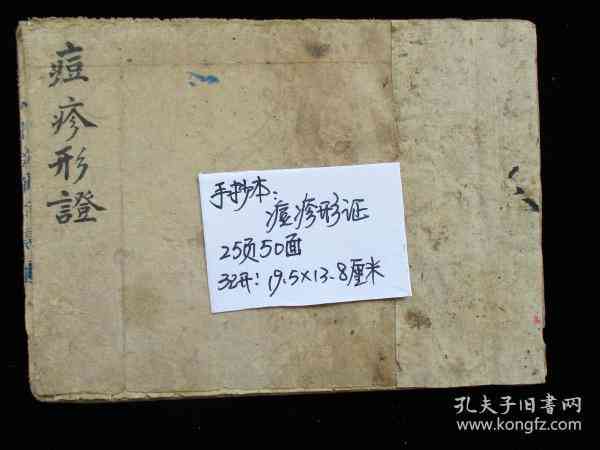 痘疹形證
手抄本:
痘疹形证
25页50面
32开: 19.5×13.8厘米
孔夫子旧書网
www.kongfz.com